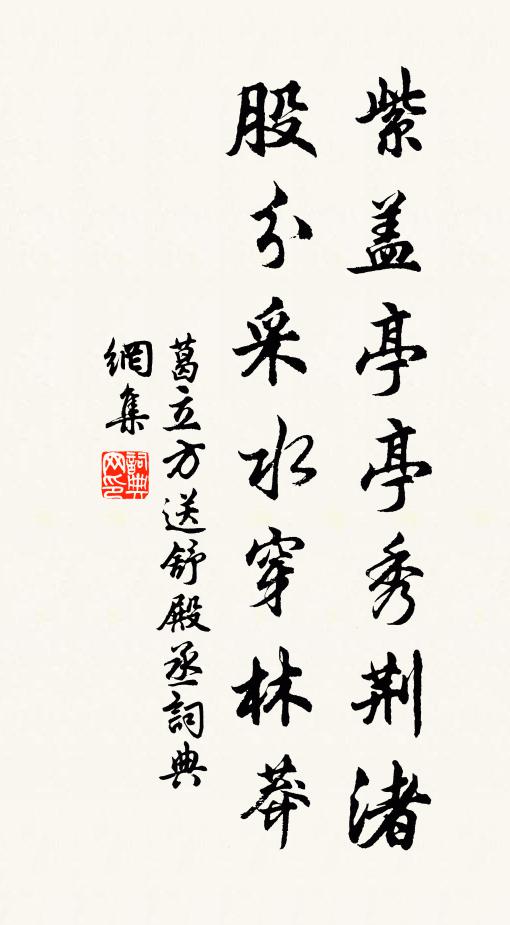 紫盖亭亭秀荆渚
股分采水穿林莽
葛立方送舒殿丞詞典
網集
詞典网印